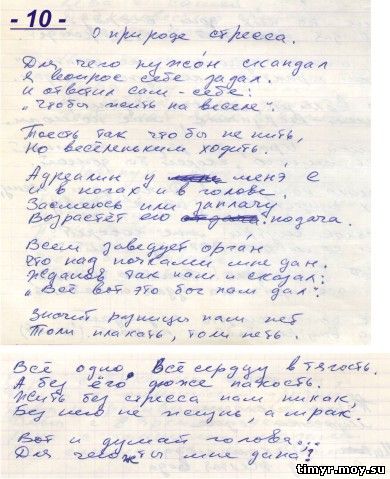 - 10 -
О природе стресса.
Для чего нужо́н скандал
Я вопрос себе задал.
И ответил сам - себе:
"Чтобы жить на веселе".
То есть так чтобы не пить,
Но весёленьким ходить.
Адреалин у менэ е
и в ногах и в голове.
Засмеюсь или заплачу
Возрастёт его подача.
Всем заведует орга́н
Что над почками мне дан.
Жданов так нам и сказал:
"Всё вот это бог нам дал".
Значит разницы нам нет
Толи плакать, толи петь.
Всё одно. Всё сердцу в тягость.
А без его дюже пакость.
Жить без стресса нам никак,
Без него не жизнь, а мрак.
Вот и думай голова...
Для чего ж ты мне дана?
timyr.moy.su